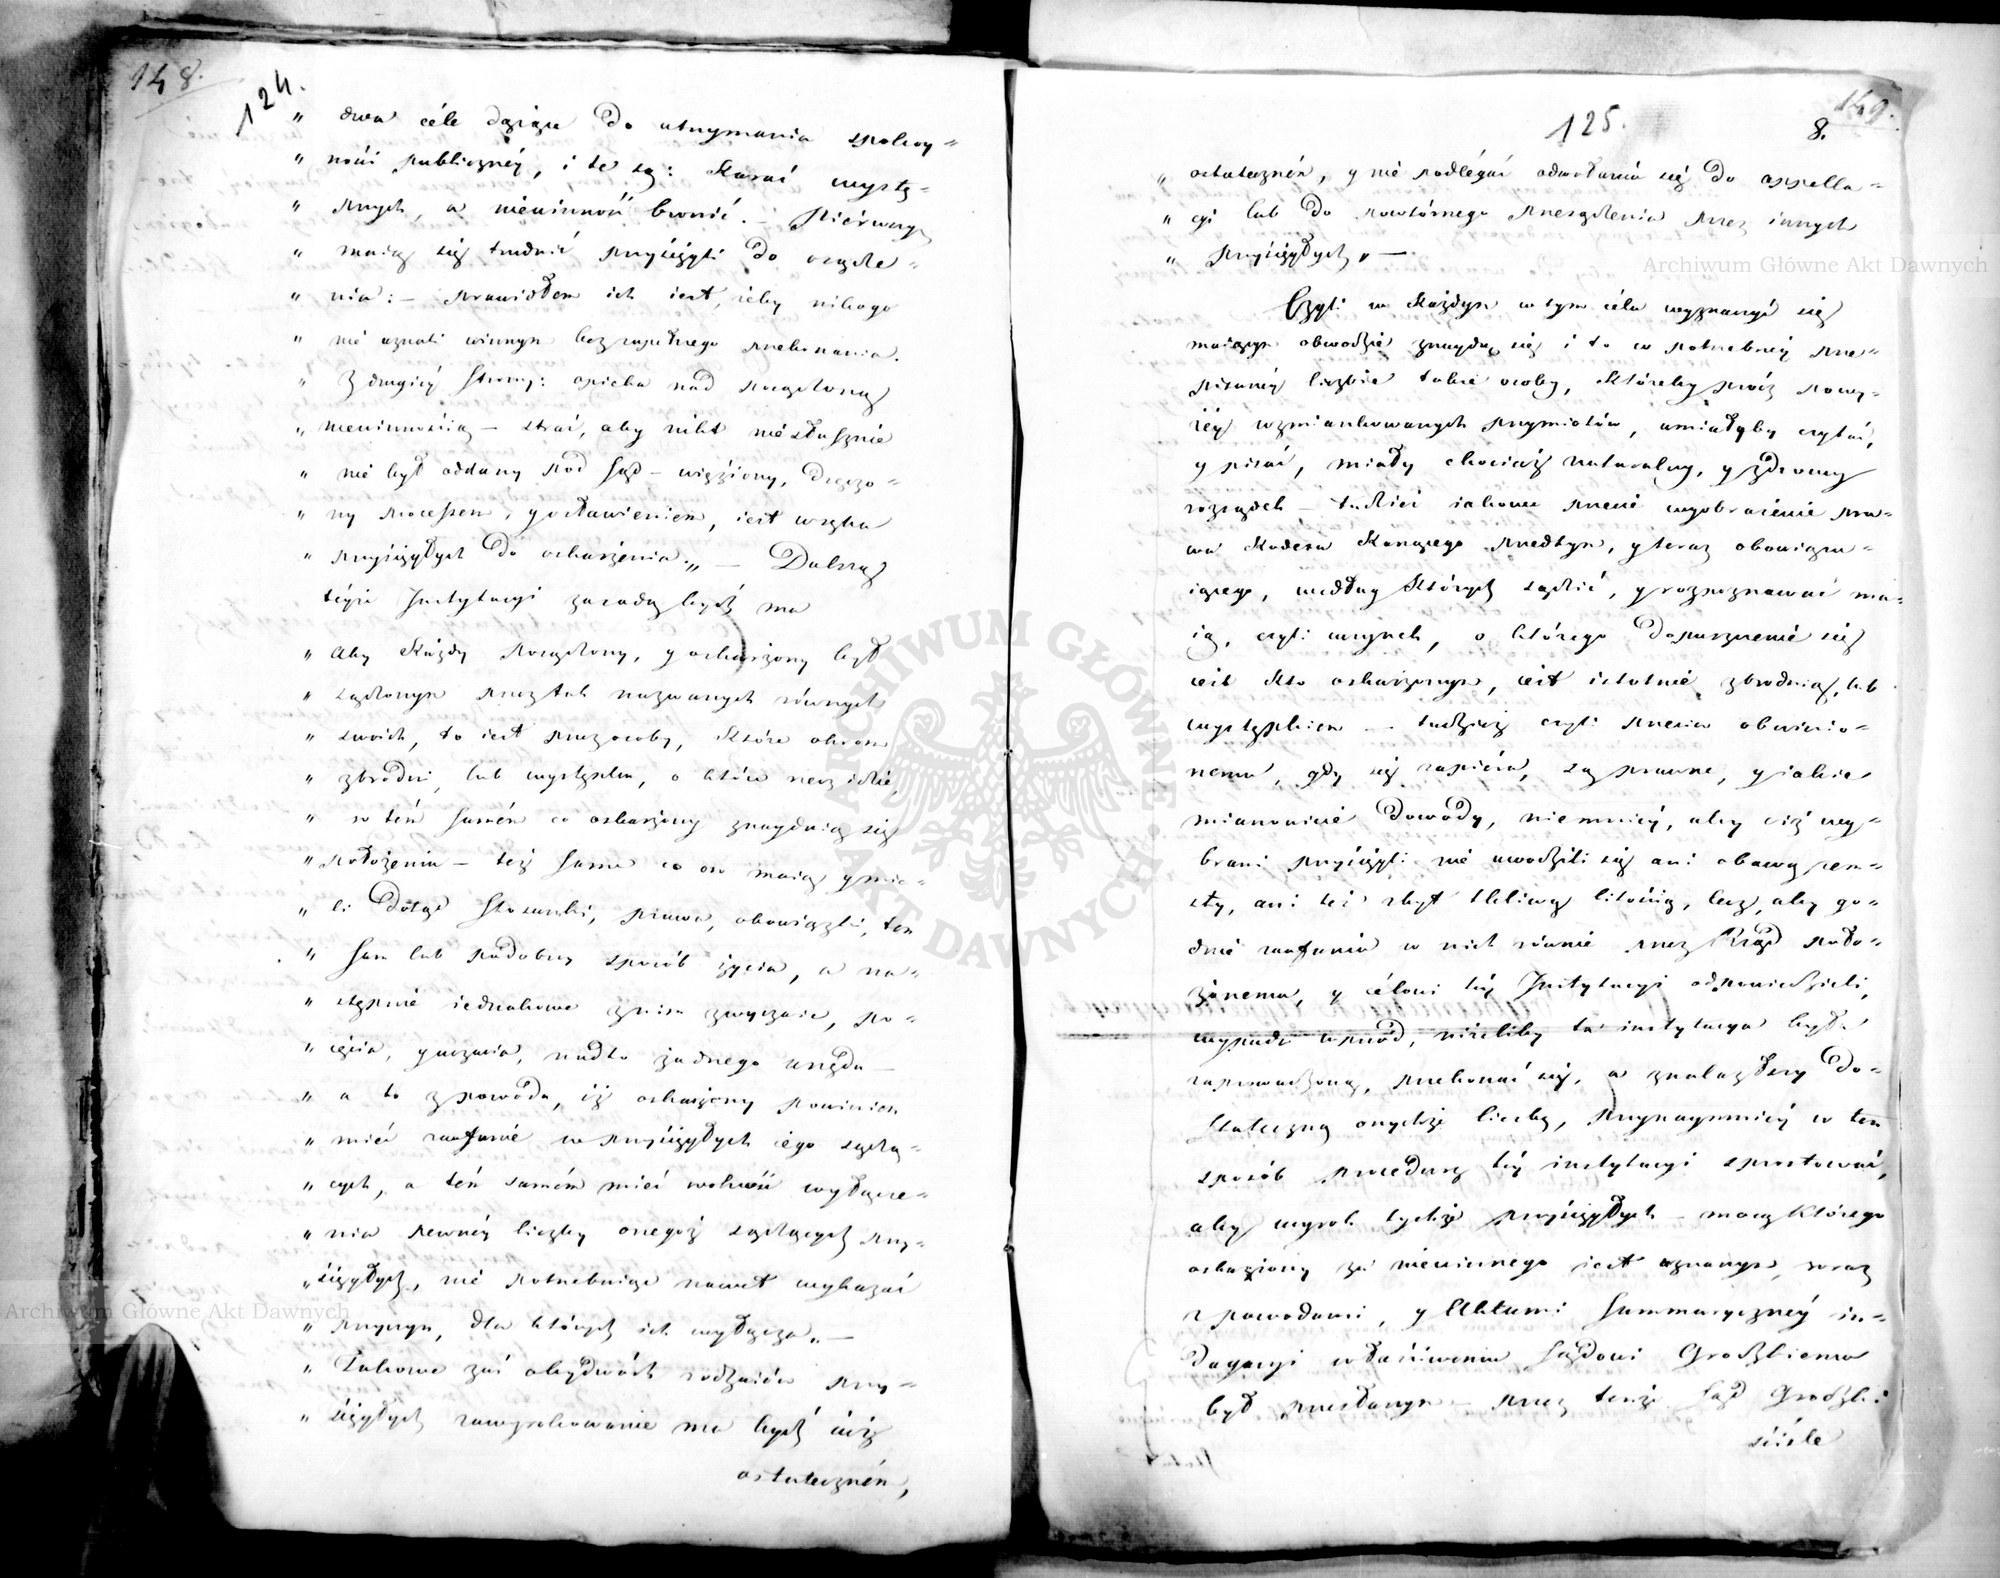 148.
124.
" dwa céle dążące do utrzymania spokoy=
" ności publicznéy, i te są: Karać wystę=
" pnych, a niewinność bronić. — Piérwszą
" maią się trudnić przysięgli do osądze=
" nia: — prawidłem ich iest, żeby nikogo
" nie uznali winnym bez zupełnego przekonania.
" Z drugiéy strony: opieka nad posądzoną
" niewinnością — straż, aby nikt niesłusznie
" nie był oddany pod Sąd — więziony, dręczo=
" ny processem, y osławieniem, iest rzeczą
" przysięgłych do oskarżenia." — Dalszą
téyże Instytucyi zasadą bydź ma
" Aby Każdy posądzony, y oskarżony był
" sądzonym przez tak nazwanych równych
" swoich, to iest przez osoby, które okrom
" zbrodni, lub występku, o które rzecz idzie,
" w tém samém co oskarżony znayduią się
" położeniu — też same co on maią y mie=
" li dotąd Stosunki, prawa, obowiązki, ten
" sam lub podobny sposób życia, a na=
" stępnie iednakowe z nim zwyczaie, po=
" ięcia, y uczucia, nadto żadnego urzędu —
" a to z powodu, iż oskarżony powinien
" mieć zaufanie w przysięgłych iego sądzą=
" cych, a tém samém mieć wolność wyłącze=
" nia pewnéy liczby onegoż sądzących przy=
" sięgłych, nie potrzebuiąc nawet wykazać
" przyczyn, dla których ich wyłącza". —
" Takowe zaś obydwóch rodzaiów przy=
" sięgłych zawyrokowanie ma bydź iuż
ostateczném,
149.
125.
8.
" ostateczném, y nie podlégać odwołaniu się do appella=
" cyi lub do powtórnego przesądzenia przez innych
" przysięgłych". —
Czyli w Każdym w tym celu wyznaczyć się
maiącym obwodzie znaydą się i to w potrzebnéy prze=
pisanéy liczbie takie osoby, któreby prócz powy=
żéy wzmiankowanych przymiotów, umiałyby czytać,
y pisać, miały chociaż naturalny, y zdrowy
rozsądek — tudzież iakowe przecie wyobrażenie pra=
wa Kodexu Karzącego przedtym, y teraz obowiązu=
iącego, według których sądzić, y rozpoznawać ma=
ią, czyli uczynek, o którego dopuszczenie się
iest kto oskarżonym, iest istotnie zbrodnią, lub
występkiem — tudzież czyli przeciw obwinio=
nemu, gdy się zapiéra, są prawne, y iakie
mianowicie dowody, niemniéy, aby ciż wy=
brani przysięgli nie uwodzili się ani obawą zem=
sty, ani też zbyt tkliwą litością, lecz, aby go=
dnie zaufaniu w nich równie przez Rząd poło=
żonemu, y célowi téy Instytucyi odpowiedzieli,
wypada wprzód, niżeliby ta instytucya była
zaprowadzoną, przekonać się, a znalazłszy do=
stateczną onychże liczbę, przynaymniéy w ten
sposób procedurę téy instytucyi sprostować,
aby wyrok tychże przysięgłych — mocą którego
oskarżony za niewinnego iest uznanym, wraz
z powodami, y Aktami Summaryczney in=
dagacyi właściwemu Sądowi Grodzkiemu
był przesłanym — przez tenże Sąd Grodzki
ściśle
Archiwum Główne Akt Dawnych
Archiwum Główne Akt Dawnych
ARCHIWUM GŁÓWNE AKT DAWNYCH